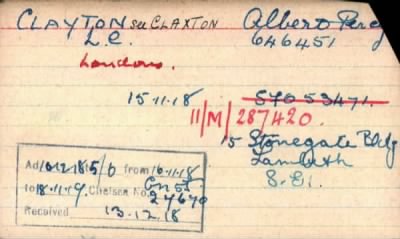 CLAYTON see CLAXTON Albert Percy
L.C. 646451
Londons.
15-11-18 570 53471.
11/M/287420.
15 Stonegate Bldg
Lambeth
S.E.1.
Ad 10-12-18 5/6 from 16-11-18
to 18-11-19. Chelsea No.
24670
Received 13-12-18